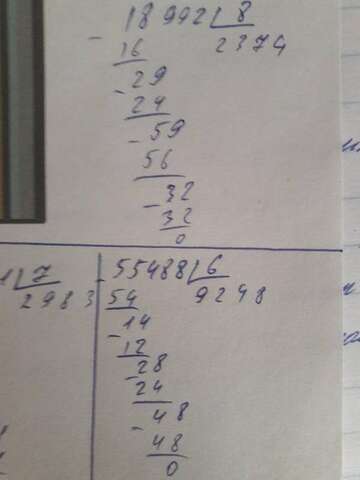 - 18992 | 8
16 2374
- 29
24
- 59
56
- 32
32
0
1 | 7
2983
- 55488 | 6
54 9248
- 14
12
- 28
24
- 48
48
0